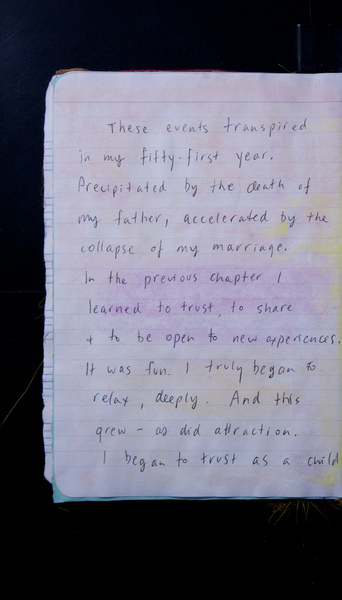 These events transpired
in my fifty-first year.
Precipitated by the death of
my father, accelerated by the
collapse of my marriage.
In the previous chapter I
learned to trust, to share
+ to be open to new experiences.
It was fun. I truly began to
relax, deeply. And this
grew - as did attraction.
I began to trust as a child